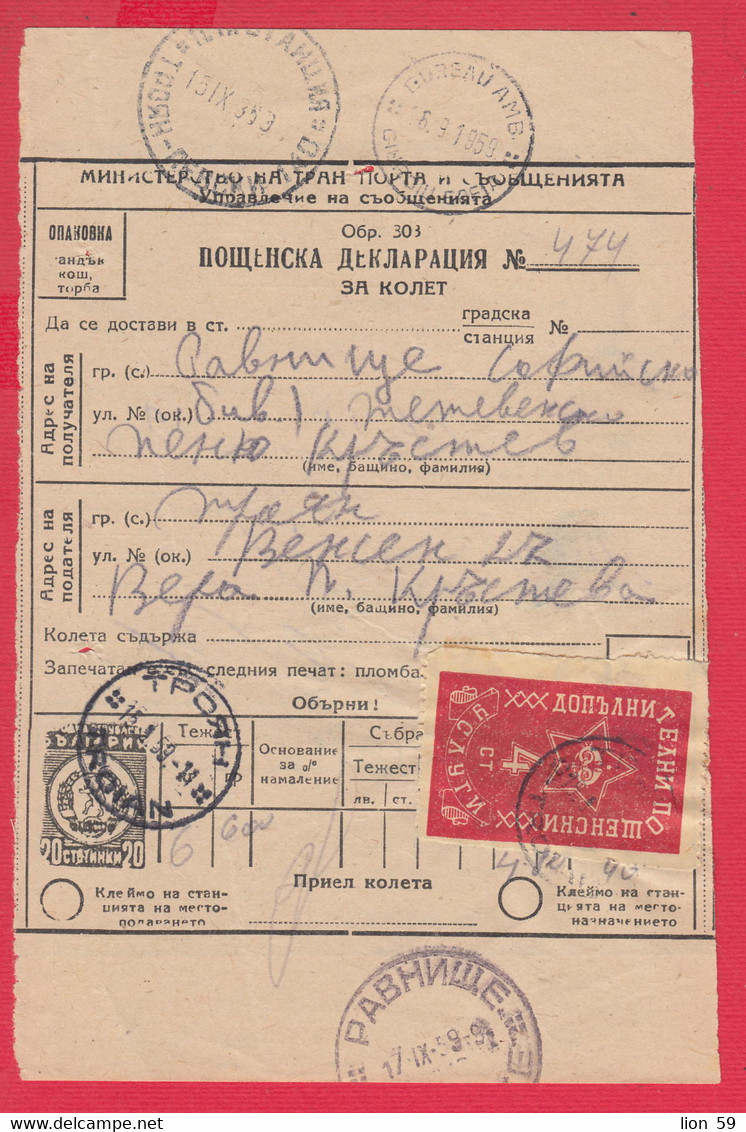 BUREAU AMB.
6.9.1959
МИНИСТЕРСТВО НА ТРАНСПОРТА И СЪОБЩЕНИЯТА
Управление на съобщенията
ОПАКОВКА
кош,
торба
Обр. 303
ПОЩЕНСКА ДЕКЛАРАЦИЯ № 474
ЗА КОЛЕТ
Да се достави в ст. градска станция №
Адрес на получателя
гр. (с.) Равнище Софийско
ул. № (ок.) бив. Тетевенско
Пеню Кръстев
(име, бащино, фамилия)
Адрес на подателя
гр. (с.) Троян
ул. № (ок.) Вежен 27
Вера П. Кръстева
(име, бащино, фамилия)
Колета съдържа
Запечатан със следния печат: пломба
Обърни!
ТРОЯН
TROIAN
20 СТОТИНКИ 20
Основание за % намаление
Тежест
яв. ст.
6 600
ДОПЪЛНИТЕЛНИ ПОЩЕНСКИ УСЛУГИ
4 СТ
Приел колета
Клеймо на станцията на местоподаването
Клеймо на станцията на местоназначението
РАВНИЩЕ
17.IX.59
lion 59